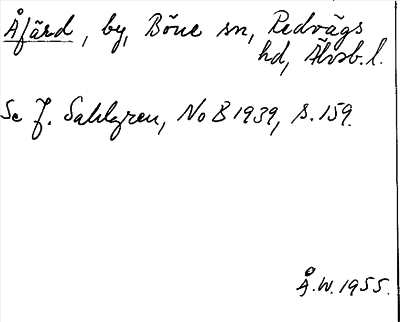 Åfärd, by, Böne sn, Redvägs
hd, Älvsb. l.
Se J. Sahlgren, No B 1939, s. 159.
Å.W. 1955.